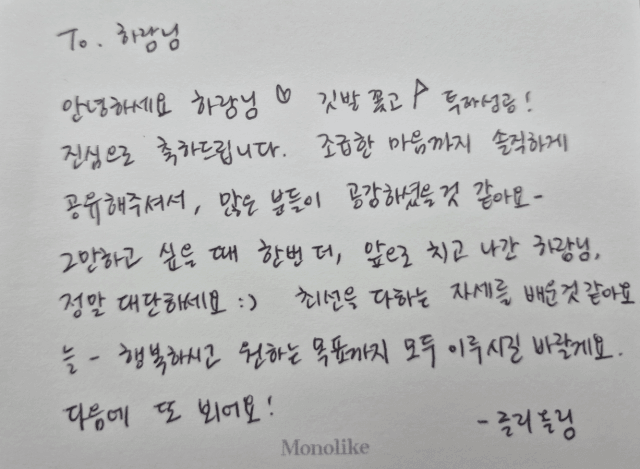 To. 하랑님
안녕하세요 하랑님♡ 깃발 꽂고 투자성공!
진심으로 축하드립니다. 조급한 마음까지 솔직하게
공유해주셔서, 많은 분들이 공감하셨을것 같아요-
그만하고 싶을 때 한번 더, 앞으로 치고 나간 하랑님,
정말 대단하세요 :) 최선을 다하는 자세를 배운것같아요
늘 - 행복하시고 원하는 목표까지 모두 이루시길 바랄게요.
다음에 또 뵈어요!
- 블링
Monolike